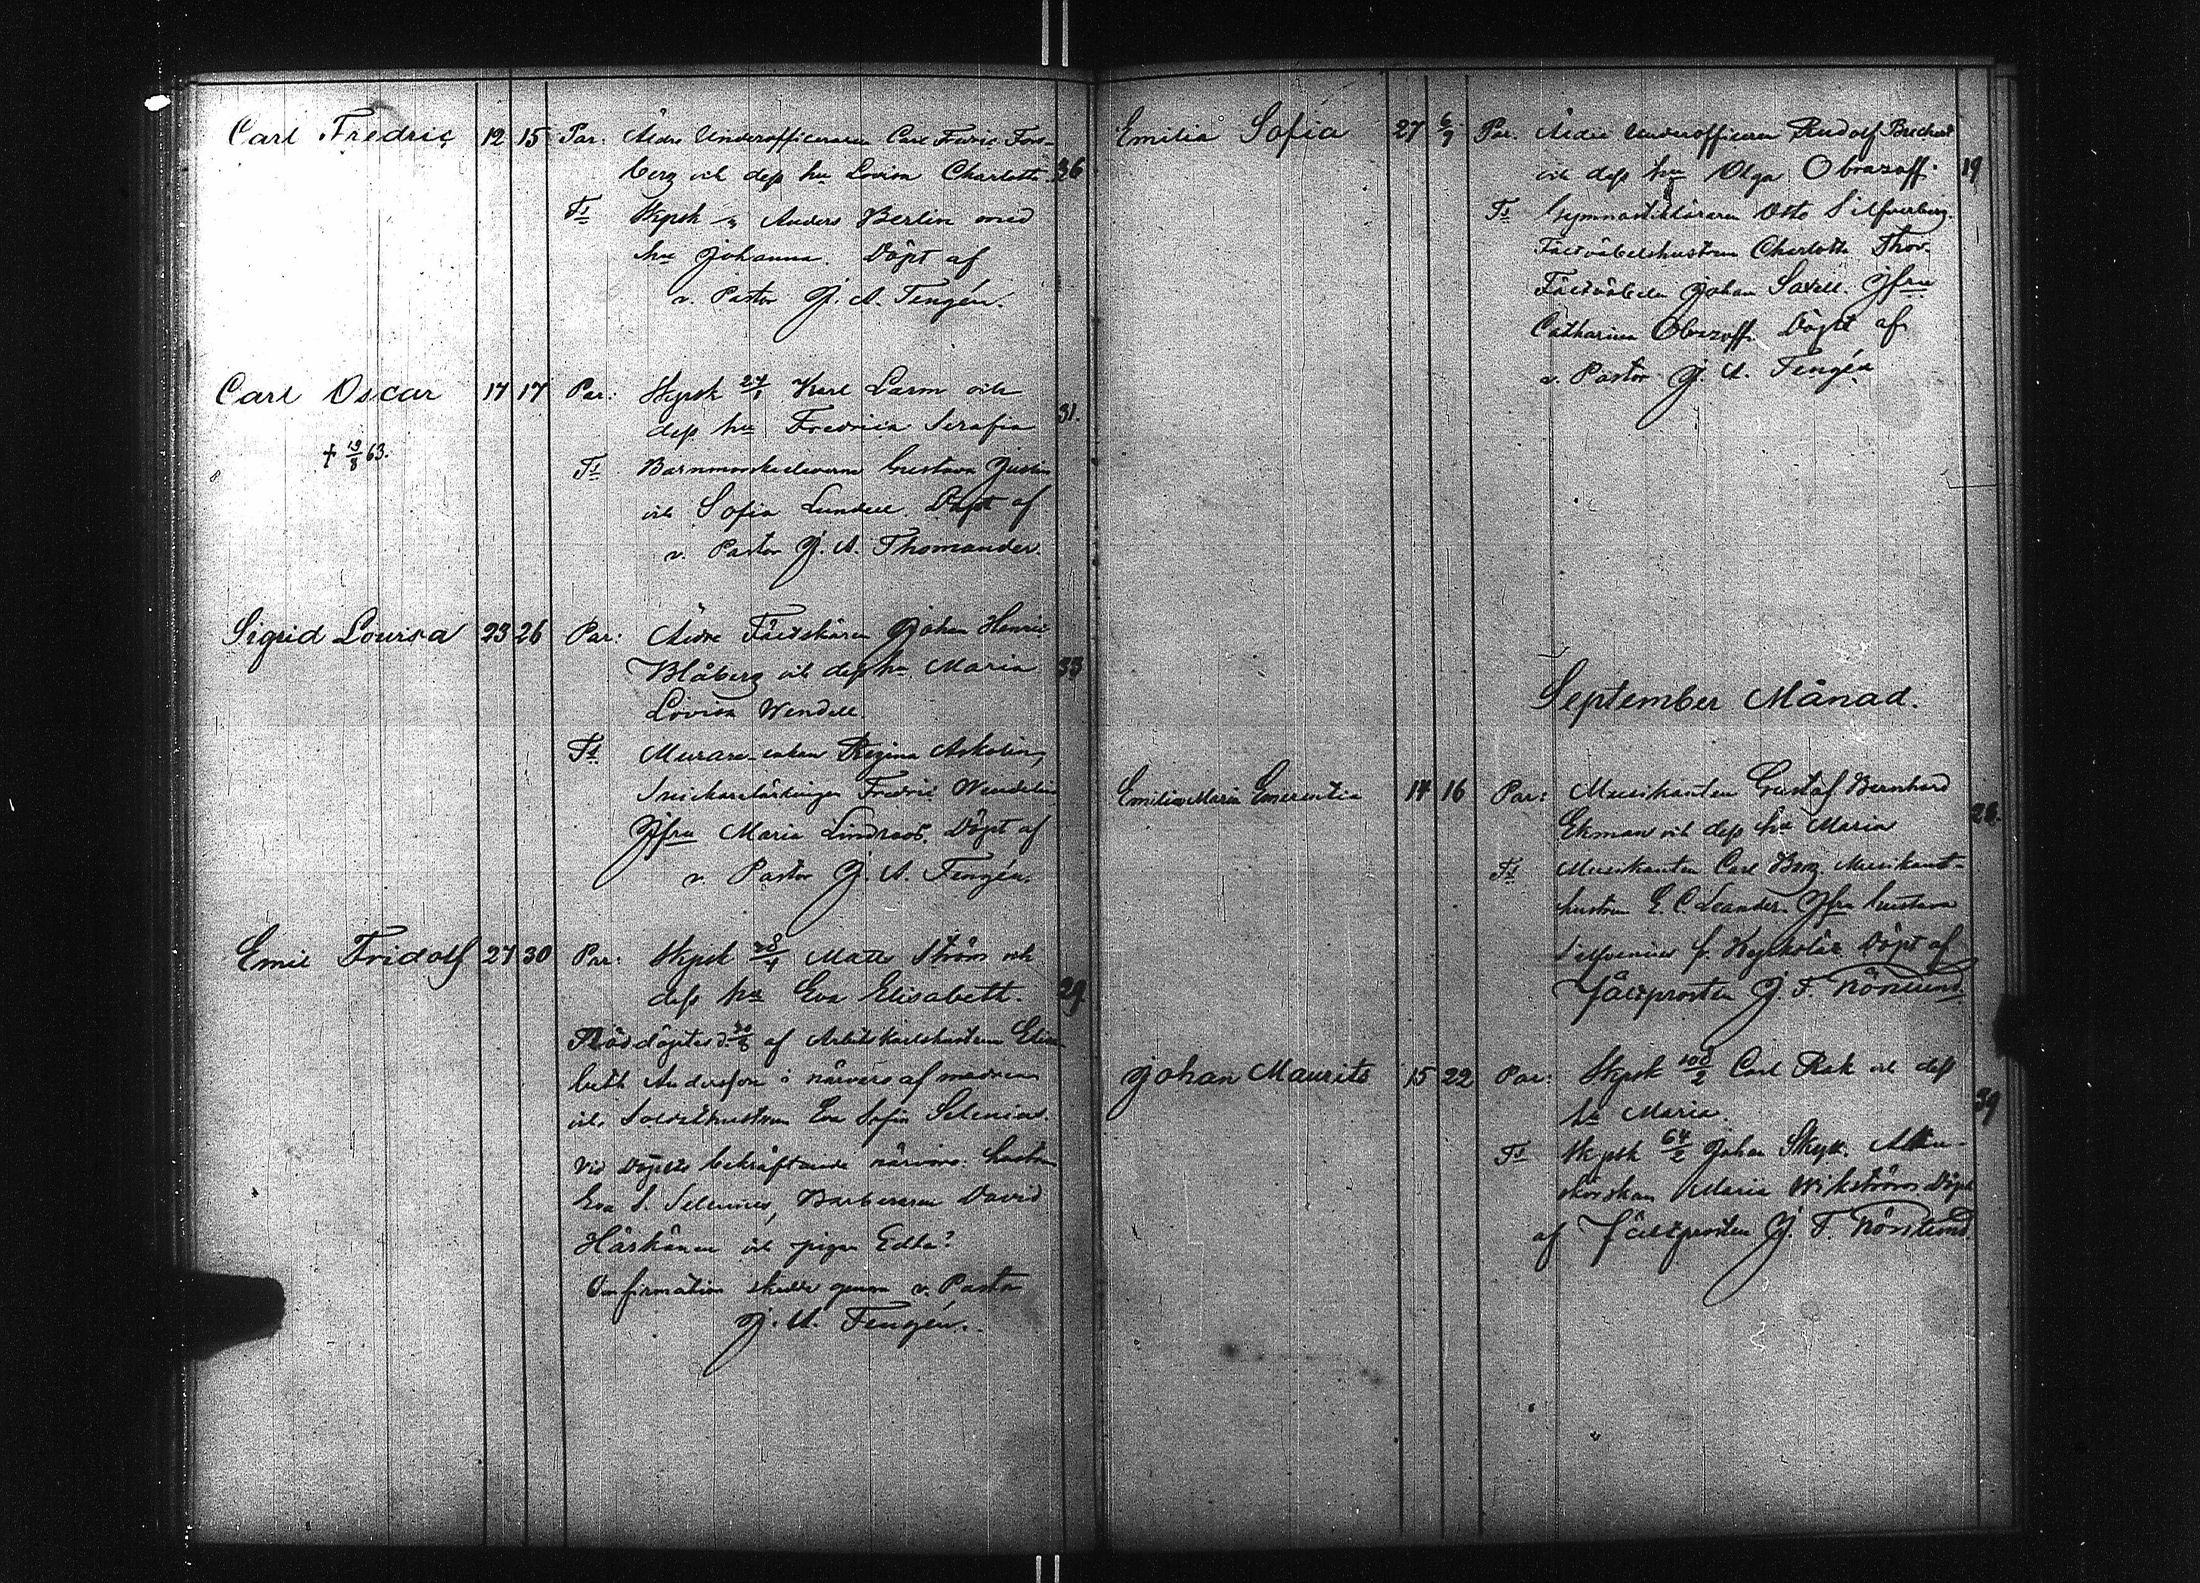 Carl Fredric 12 15 Par: Äldre Underofficeraren Carl Fredric Fors-
berg och dess hu Lovisa Charlotta. 36
Ts Skpsk Anders Berlin med
hu Johanna. Döpt af
v. Pastor J. A. Tengén.
Carl Oscar 17 17 Par: Skpsk 24/1 Karl Larm och
dess hu Fredrica Serafia 31.
+ 19/8 63.
Ts Barnmorskeeleverna Gustava Justin
och Sofia Lundell. Döpt af
v. Pastor J. A. Thomander.
Sigrid Lovisa 23 26 Par: Äldre Fältskären Johan Henric
Blåberg och dess hu Maria 33
Lovisa Wendell.
Ts Murare-enkan Regina Askolin,
Snickarelärlingen Fredric Wendelin
Jfru Maria Lindroos. Döpt af
v. Pastor J. A. Tengén.
Emil Fridolf 27 30 Par: Skpsk 28/4 Matts Ström och
dess hu Eva Elisabeth. 29
Nöddöptes d. 30/8 af Arbetskarlshustrun Elisa-
beth Andersson i närvaro af modren
och Soldathustrun Eva Sofia Selenius.
Vid Döpets bekräftande närvoro: hustru
Eva S. Selenius, Barberaren David
Härkänen och pigan Edla?
Confirmation skedde genom v. Pastor
J. A. Tengén.
Emilia Sofia 27 6/9 Par. Äldre Underofficeren Rudolf
och dess hu Olga Obrazoff. 19
Ts Gymnastikläraren Otto Silfverberg.
Fältväbelshustrun Charlotta Thor.
Fältväbeln Johan Saxell. Jfru
Catharina Obrazoff. Döpt af
v. Pastor J. A. Tengén
September Månad.
Emilia Maria Emerentia 14 16 Par: Musikanten Gustaf Bernhard
Ekman och dess hu Maria 28.
Ts Musikanten Carl Berg. Musikant-
hustrun E. C. Leander. Jfru Gustava
fr. Kyrkslätt. Döpt af
Fältprosten J. F. Rönlund.
Johan Maurits 15 22 Par: Skpsk 108/2 Carl Rak och dess
hu Maria. 39
Ts Skpsk 64/2 Johan Skytt.
Maria Wikström. Döpt
af Fältprosten J. F. Rönlund.